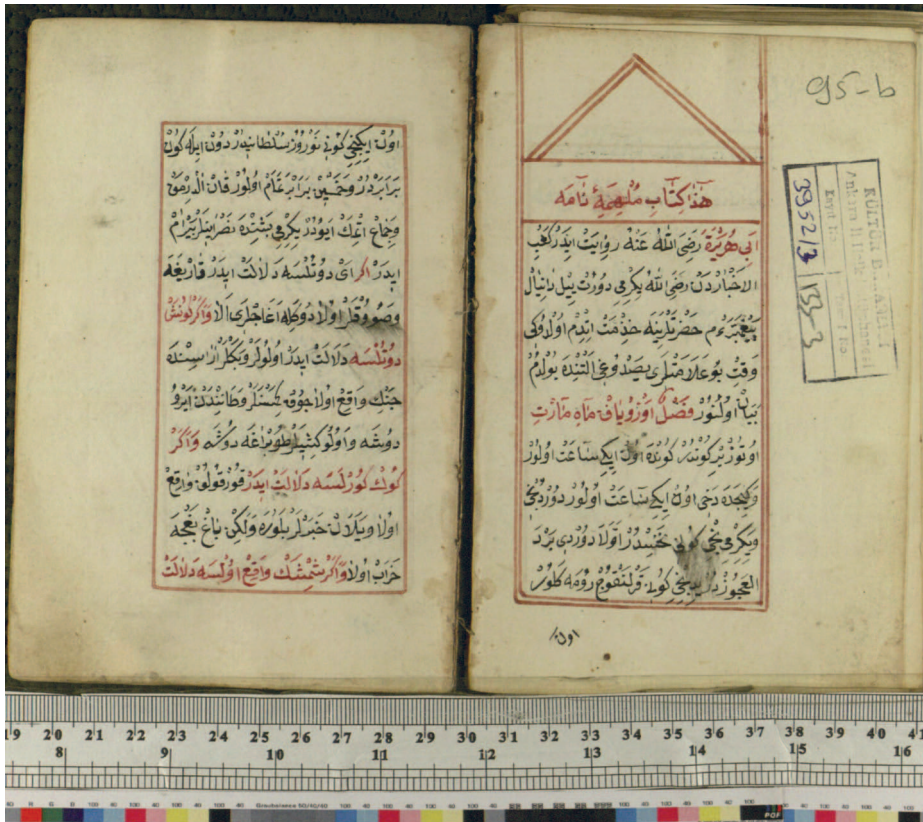 95-b
KÜLTÜR B
Ankara İl H
Kayıt No
3952/3
هٰذَا كِتَابِ مُلْهِمَهٔ نَامَه
اَبِي هُرَيْرَهْ رَضِيَ اللّٰهُ عَنْهُ رِوَايَتْ اِيدَرْ كَعْبِ
الاَخْبَارْدَنْ رَضِيَ اللّٰهُ يِكِرْمِي دُورْتْ يِيلْ دَانِيَالْ
پَيْغَمْبَرْ حَضْرَتْلَرِينَه خِذْمَتْ اِتْدِمْ اولْدُوكِي
وَقِتْ بُو عَلَامَتْلَرِي يَصْدُوغِي اَلْتِنْدَه بُولْدُمْ
بَيَانْ اُولُنُورْ فَصْلِ اَوّلْ مَاهِ مَارْتِ
اوتُوزْ بِرْ كُونْدُرْ كُونْدُه اُونْ اِيكِي سَاعَتْ اُولُورْ
وَكِيجَه دَخِي اُونْ اِيكِي سَاعَتْ اُولُورْ دُورْدُنْجِي
وَيِكِرْمِ نْجِي كُونِي نَحِسْدُرْ اَوَّلَا دُورْدِي بَرْدَ
العَجُوزْدُرْ يِدِنْجِي كُونِ قَرْلَنْقُوجْ رُومَه كَلُورْ
اون
اونْ اِيكِنْجِي كُونِي نَوْرُوزِ سُلْطَانِيدِرْ دُونْ اِيلَه كُونْ
بَرَابَرْدُرْ وَ بَرَابَرْ اُولُورْ قَانْ اَلْدِرْمَقْ
وَجِمَاعْ اِتْمَكْ اَيُودُرْ يِكِرْمِي بَشِنْدَه نَصْرَانِيلَرْ بَيْرَامْ
اِيدَرْ اَكَرْ اَيْ دُوتُلْسَه دَلَالَتْ اِيدَرْ قَارِيغَه
وَصُووُقْلَرْ اُولَا دُوكَلِه اَغَاجْلَرِي اَلَا وَاَكَرْ كُونَشْ
دُوتُلْسَه دَلَالَتْ اِيدَرْ اُولُولَرْ وَبَكْلَرْ اَرَاسِنْدَه
جَنْكْ وَاقِعْ اُولَا چُوقْ كِمْسَنَه لَرْ وَطَانِنْدَنْ اَيْرُو
دُوشَه وَاُولُو كِشِيلَرْ طُوپْرَاغَه دُوشَه وَاَكَرْ
كُوكْ كُورْلَسَه دَلَالَتْ اِيدَرْ قُورْقُولُقْ وَاقِعْ
اُولَا وَيَلَانْ خَبَرْلَرْ سُويلَنَه وَلَكِنْ بَاغْ بَغْچَه
خَرَابْ اُولَا وَاَكَرْ شِمْشَكْ وَاقِعْ اُولْسَه دَلَالَتْ